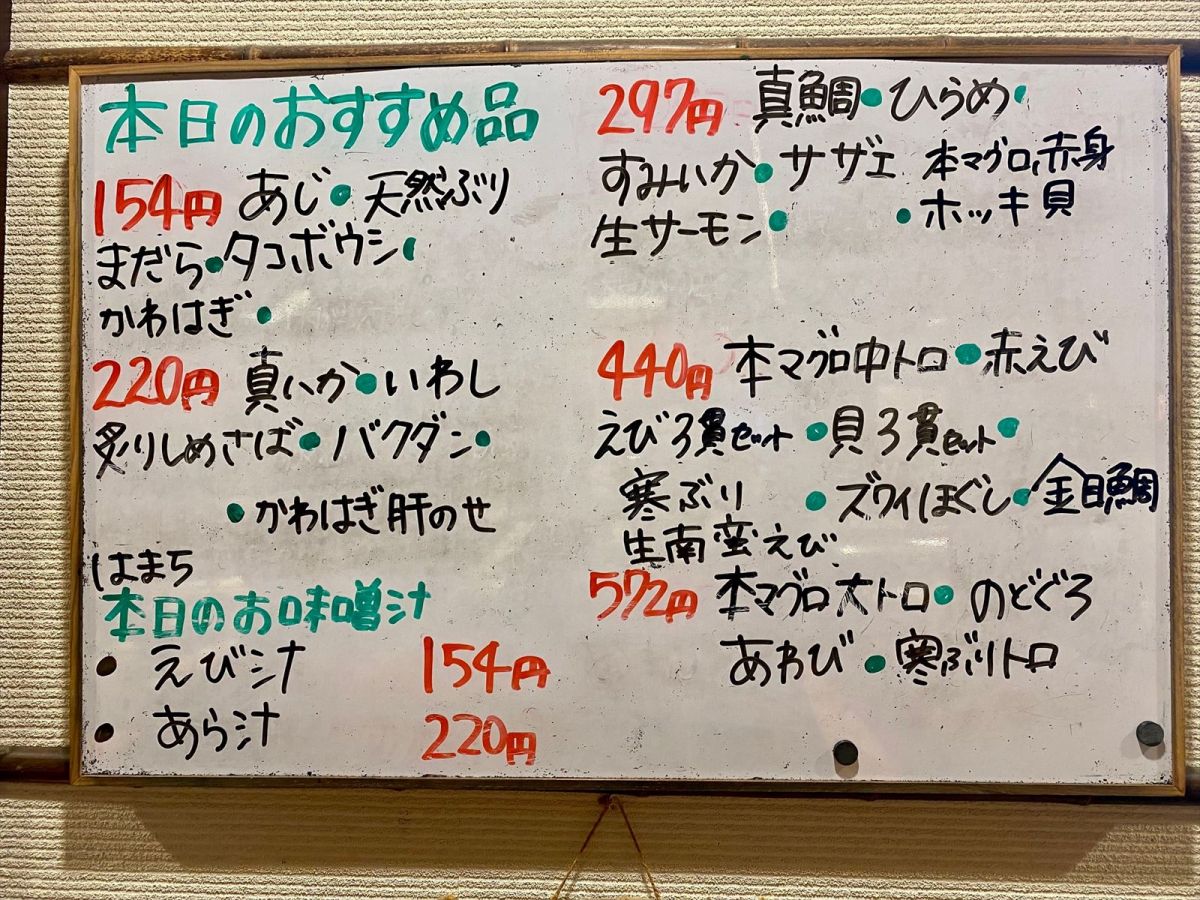 本日のおすすめ品
154円 あじ・天然ぶり
まだら・タコボウシ・
かわはぎ・
220円 真いか・いわし
炙りしめさば・バクダン・
・かわはぎ肝のせ
はまち
本日のお味噌汁
・えび汁 154円
・あら汁 220円
297円 真鯛・ひらめ・
すみいか・サザエ 本マグロ赤身
生サーモン・ ・ホッキ貝
440円 本マグロ中トロ・赤えび
えび3貫セット・貝3貫セット・
寒ぶり ・ズワイほぐし・金目鯛
生南蛮えび
572円 本マグロ大トロ・のどぐろ
あわび・寒ぶりトロ